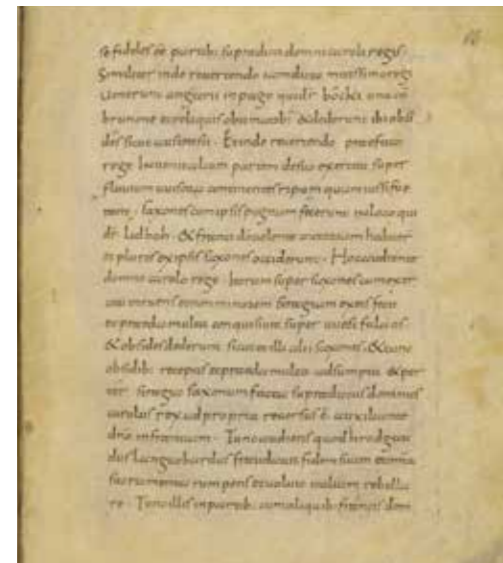 & fideles ēē partib; supradicti domni caroli regis
Similiter inde revertendo iamdicto mitissimo regi
venerunt angrarii in pago qui dr̄ bocki una cū
brunone et reliquis obtimatib; & dederunt ibi obsi
des sicut austrasii · Et inde revertendo praefato
rege aliam partem de suo exercitu super
fluvium continentes ripam quam iussi fue
runt, Saxones cum ipsis pugnam fecerunt in loco qui
dr̄ lidbah · & franci dō volente victoriam habuer̄
et plures ex ipsis saxones occiderunt · Hoc audiente
domno carolo rege · iterum super saxones cum exer
citu inruens et non minorem stragium ex eis fecit
et praeda multa conquisivit super uuestfalaos ·
& obsides dederunt sicut et illi alii saxones · & tunc
obsidib; receptis et praeda multa adsumpta & per
ter stragia saxonum facta supradictus domnus
carolus rex ad propria reversus ē auxiliante
dn̄o in franciam · Tunc audiens quod hrodgau
dus langobardus fraudavit fidem suam & omnia
sacramenta rumpens et voluit italiam rebella
re · Tunc illis in partib; cum aliquib; francis dom